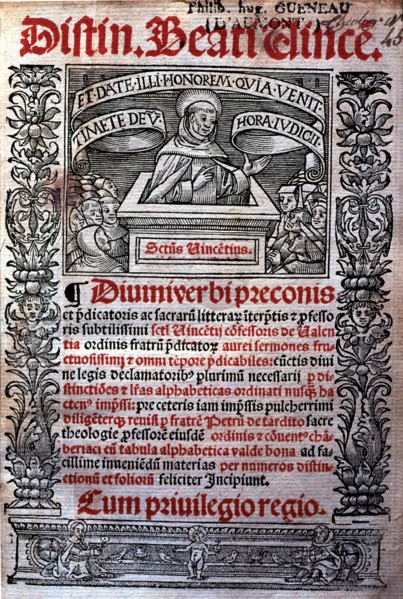 Philib. hug. GUENEAU
(D'AUMONT.)
45
Distin. Beati Uincē.
ET·DATE·ILLI·HONOREM·QVIA·VENIT·
TIMETE·DEV̄·
HORA·IVDICII·
Sctūs Uincētius.
¶ Diuini verbi preconis
et p̄dicatoris ac sacrarū litterarꝝ īterp̄tis ⁊ ꝓfesso
ris subtilissimi sctī Uincētij cōfessoris de Ualen
tia ordinis fratrū p̄dicatorꝝ aurei sermones fru
ctuosissimi ⁊ omni tēpore p̄dicabiles: cūctis diui
ne legis declamatoribꝰ plurimū necessarij ꝑ di
stinctiōes ⁊ lr̄as alphabeticas ordinati nusqꝫ ha
ctenꝰ imp̄ssi: pre ceteris iam imp̄ssis pulcherrimi
diligēterqꝫ reuisi ꝑ fratrē Petrū de tardito sacre
theologie ꝓfessorē eiusdē ordinis ⁊ cōuentꝰ chā
beriaci cū tabula alphabetica valde bona ad fa
cillime inueniēdū materias per numeros distin
ctionū et foliorū feliciter Incipiunt.
Cum priuilegio regio.